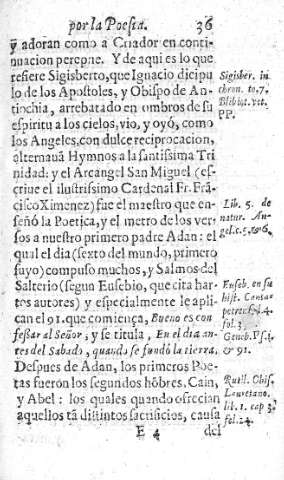 por la Poesia. 36
y adoran como a Criador en conti-
nuacion perepne. Y de aqui es lo que
refiere Sigisberto, que Ignacio dicipu
lo de los Apostoles, y Obispo de An-
tiochia, arrebatado en ombros de su
espiritu a los cielos, vio, y oyó, como
los Angeles con dulce reciprocacion,
alternauã Hymnos a la santissima Tri
nidad: y el Arcangel San Miguel (es-
criue el ilustrissimo Cardenal Fr. Frã-
cisco Ximenez) fue el maestro que en-
señó la Poetica, y el metro de los ver-
sos a nuestro primero padre Adan: el
qual el dia (sexto del mundo, primero
suyo) compuso muchos, y Salmos del
Salterio (segun Eusebio, que cita har-
tos autores) y especialmente le apli-
can el 91. que comiença, Bueno es con
fessar al Señor, y se titula, En el dia an-
tes del Sabado, quando se fundó la tierra.
Despues de Adan, los primeros Poe-
tas fueron los segundos hõbres, Cain,
y Abel: los quales quando ofrecian
aquellos tã distintos sacrificios, causa
E 4 del
Sigisber. in
chron. to. 7.
Bibliot. vet.
PP.
Lib. 5. de
natur. An-
gel. c. 5, & 6.
Euseb. en su
hist. Cantar
petrus f. 4.
fol. 3.
Geneb. Ps. 1.
& 91.
Rutil. Chis.
Lauretiano.
lib. 1. cap 3.
fol. 24.